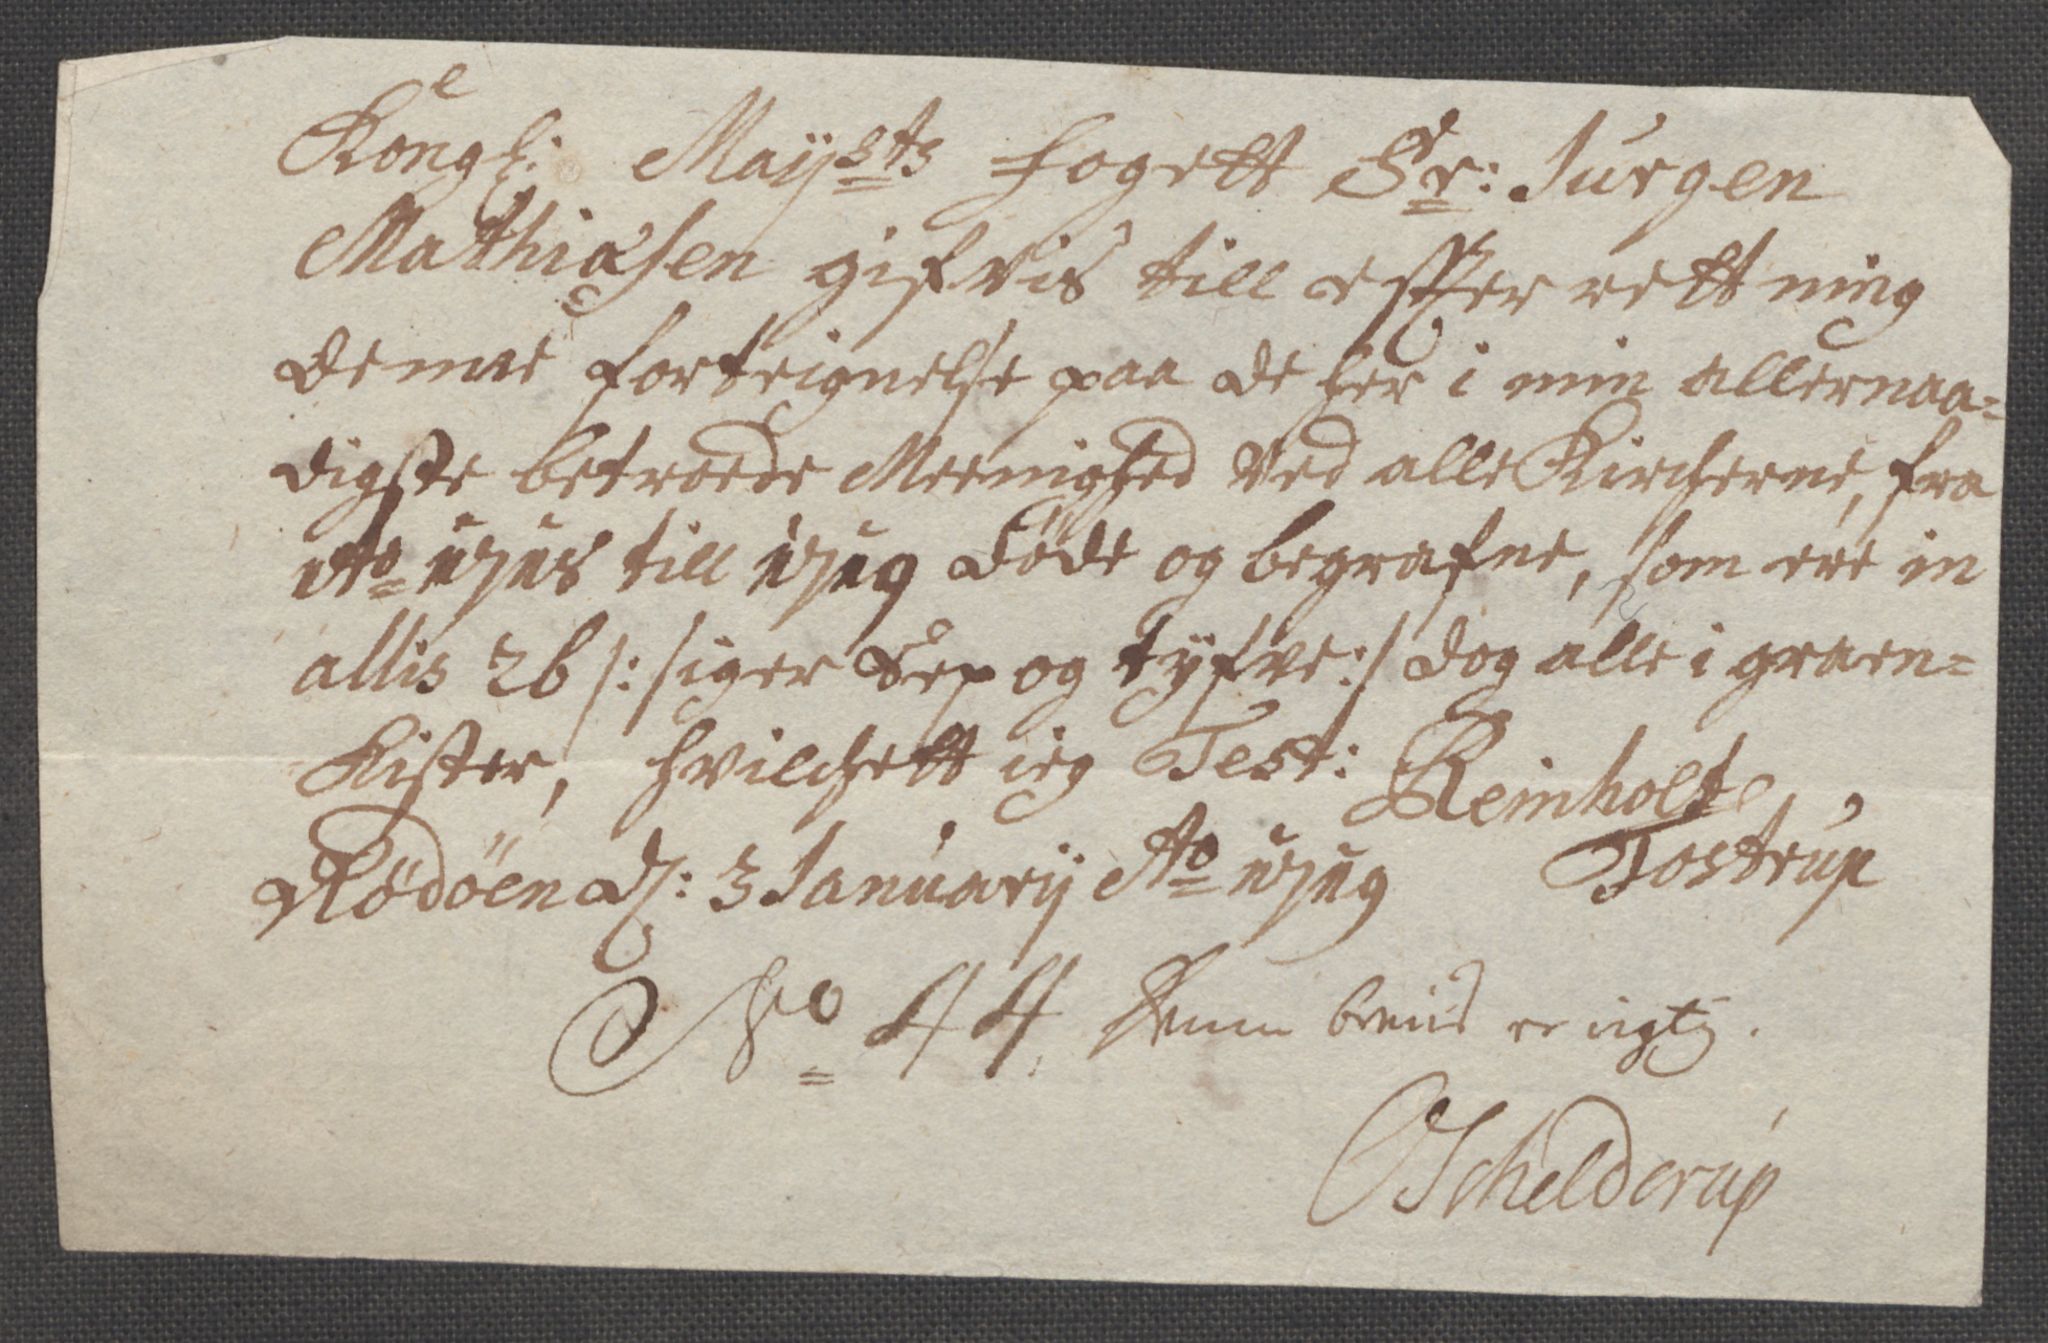 Kongl: Mayts fogett Sr: Jurgen
Mathiasen gifvis till efter rettning
denne forteignelse paa de her i min allernaa=
digste betroede Meenighed Ved alle Kircherne, fra
Ao 1718 till 1719 døde og begrafne, som ere in
allis 26 /: siger Sex og tyfve :/ dog alle i graen=
kister, hvilchett ieg Test: Reinholt
Rödöen d: 3 Januarij Ao 1719 Tostrup
No 44 Denne beviis er rigtig.
OSchelderup